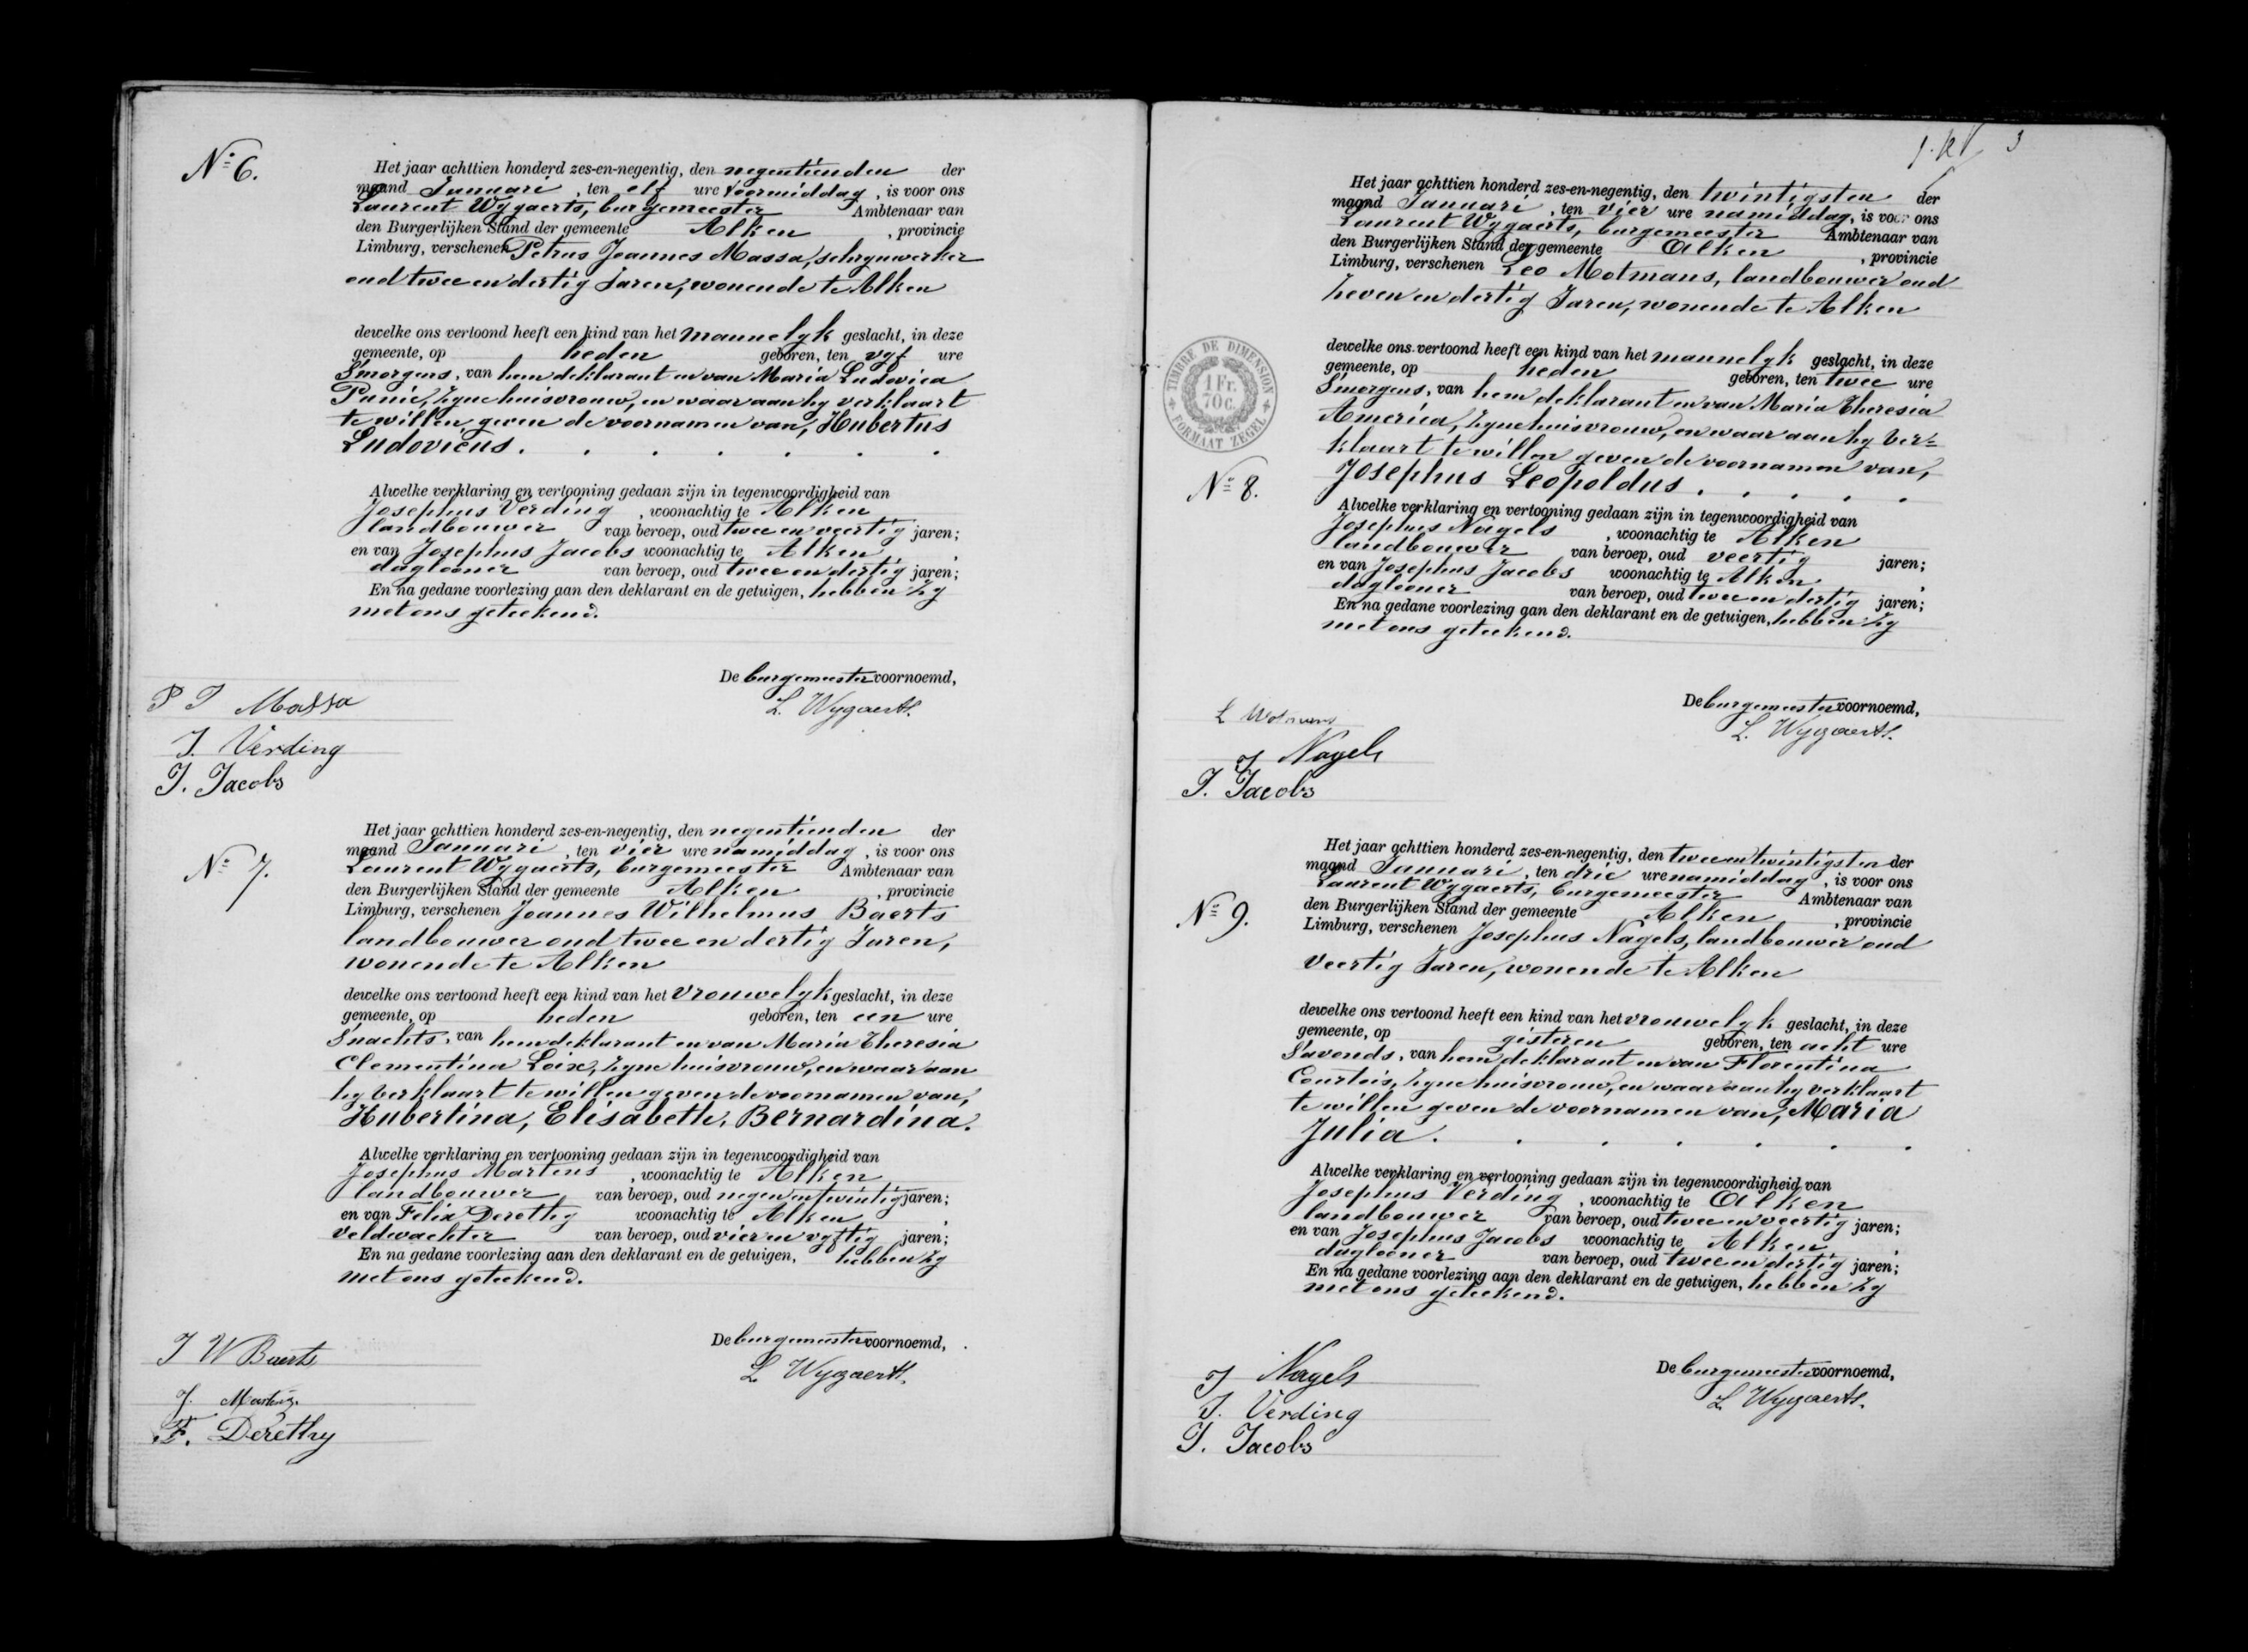 Nº 6.
Het jaar achttien honderd zes-en-negentig, den negentienden der
maand Januari , ten elf ure voormiddag , is voor ons
Laurent Wygaerts, burgemeester Ambtenaar van
den Burgerlijken Stand der gemeente Alken , provincie
Limburg, verschenen Petrus Joannes Massa, schrynwerker
oud twee en dertig Jaren, wonende te Alken
dewelke ons vertoond heeft een kind van het mannelyk geslacht, in deze
gemeente, op heden geboren, ten vyf ure
S'morgens, van hem deklarant en van Maria Ludovica
zyne huisvrouw, en waar aan hy verklaart
te willen geven de voornamen van, Hubertus
Ludovicus.
Alwelke verklaring en vertooning gedaan zijn in tegenwoordigheid van
Josephus Verding , woonachtig te Alken
landbouwer van beroep, oud twee en veertig jaren;
en van Josephus Jacobs woonachtig te Alken ,
daglooner van beroep, oud twee en dertig jaren;
En na gedane voorlezing aan den deklarant en de getuigen, hebben zy
met ons geteekend.
De burgemeester voornoemd,
L. Wygaerts.
P J Massa
J. Verding
J. Jacobs
Nº 7.
Het jaar achttien honderd zes-en-negentig, den negentienden der
maand Januari , ten vier ure namiddag , is voor ons
Laurent Wygaerts, burgemeester Ambtenaar van
den Burgerlijken Stand der gemeente Alken , provincie
Limburg, verschenen Joannes Wilhelmus Baerts
landbouwer oud twee en dertig Jaren,
wonende te Alken
dewelke ons vertoond heeft een kind van het vrouwelyk geslacht, in deze
gemeente, op heden geboren, ten een ure
S'nachts, van hem deklarant en van Maria Theresia
Clementina Loix, zyne huisvrouw, en waar aan
hy verklaart te willen geven de voornamen van,
Hubertina, Elisabeth, Bernardina.
Alwelke verklaring en vertooning gedaan zijn in tegenwoordigheid van
Josephus Martens , woonachtig te Alken
landbouwer van beroep, oud negen en twintig jaren;
en van Felix Derethy woonachtig te Alken ,
Veldwachter van beroep, oud vier en vyftig jaren;
En na gedane voorlezing aan den deklarant en de getuigen, hebben zy
met ons geteekend.
De burgemeester voornoemd,
L. Wygaerts.
J W Baerts
J. Martens
F. Derethy
3
TIMBRE DE DIMENSION
1 Fr.
70 c.
FORMAAT ZEGEL
Nº 8.
Het jaar achttien honderd zes-en-negentig, den twintigsten der
maand Januari , ten vier ure namiddag, is voor ons
Laurent Wygaerts, burgemeester Ambtenaar van
den Burgerlijken Stand der gemeente Alken , provincie
Limburg, verschenen Leo Motmans, landbouwer oud
zeven en dertig Jaren, wonende te Alken
dewelke ons vertoond heeft een kind van het mannelyk geslacht, in deze
gemeente, op heden geboren, ten twee ure
S'morgens, van hem deklarant en van Maria Theresia
America, zyne huisvrouw, en waar aan hy ver=
klaart te willen geven de voornamen van,
Josephus Leopoldus.
Alwelke verklaring en vertooning gedaan zijn in tegenwoordigheid van
Josephus Nagels , woonachtig te Alken
landbouwer van beroep, oud veertig jaren;
en van Josephus Jacobs woonachtig te Alken ,
daglooner van beroep, oud twee en dertig jaren;
En na gedane voorlezing aan den deklarant en de getuigen, hebben zy
met ons geteekend.
De burgemeester voornoemd,
L. Wygaerts.
L Motmans
J Nagels
J. Jacobs
Nº 9.
Het jaar achttien honderd zes-en-negentig, den twee en twintigsten der
maand Januari , ten drie ure namiddag , is voor ons
Laurent Wygaerts, burgemeester Ambtenaar van
den Burgerlijken Stand der gemeente Alken , provincie
Limburg, verschenen Josephus Nagels, landbouwer oud
veertig Jaren, wonende te Alken
dewelke ons vertoond heeft een kind van het vrouwelyk geslacht, in deze
gemeente, op gisteren geboren, ten acht ure
S'avonds, van hem deklarant en van Florentina
Courtois, zyne huisvrouw, en waar aan hy verklaart
te willen geven de voornamen van, Maria
Julia.
Alwelke verklaring en vertooning gedaan zijn in tegenwoordigheid van
Josephus Verding , woonachtig te Alken
landbouwer van beroep, oud twee en veertig jaren;
en van Josephus Jacobs woonachtig te Alken ,
daglooner van beroep, oud twee en dertig jaren;
En na gedane voorlezing aan den deklarant en de getuigen, hebben zy
met ons geteekend.
De burgemeester voornoemd,
L. Wygaerts.
J Nagels
J. Verding
J. Jacobs